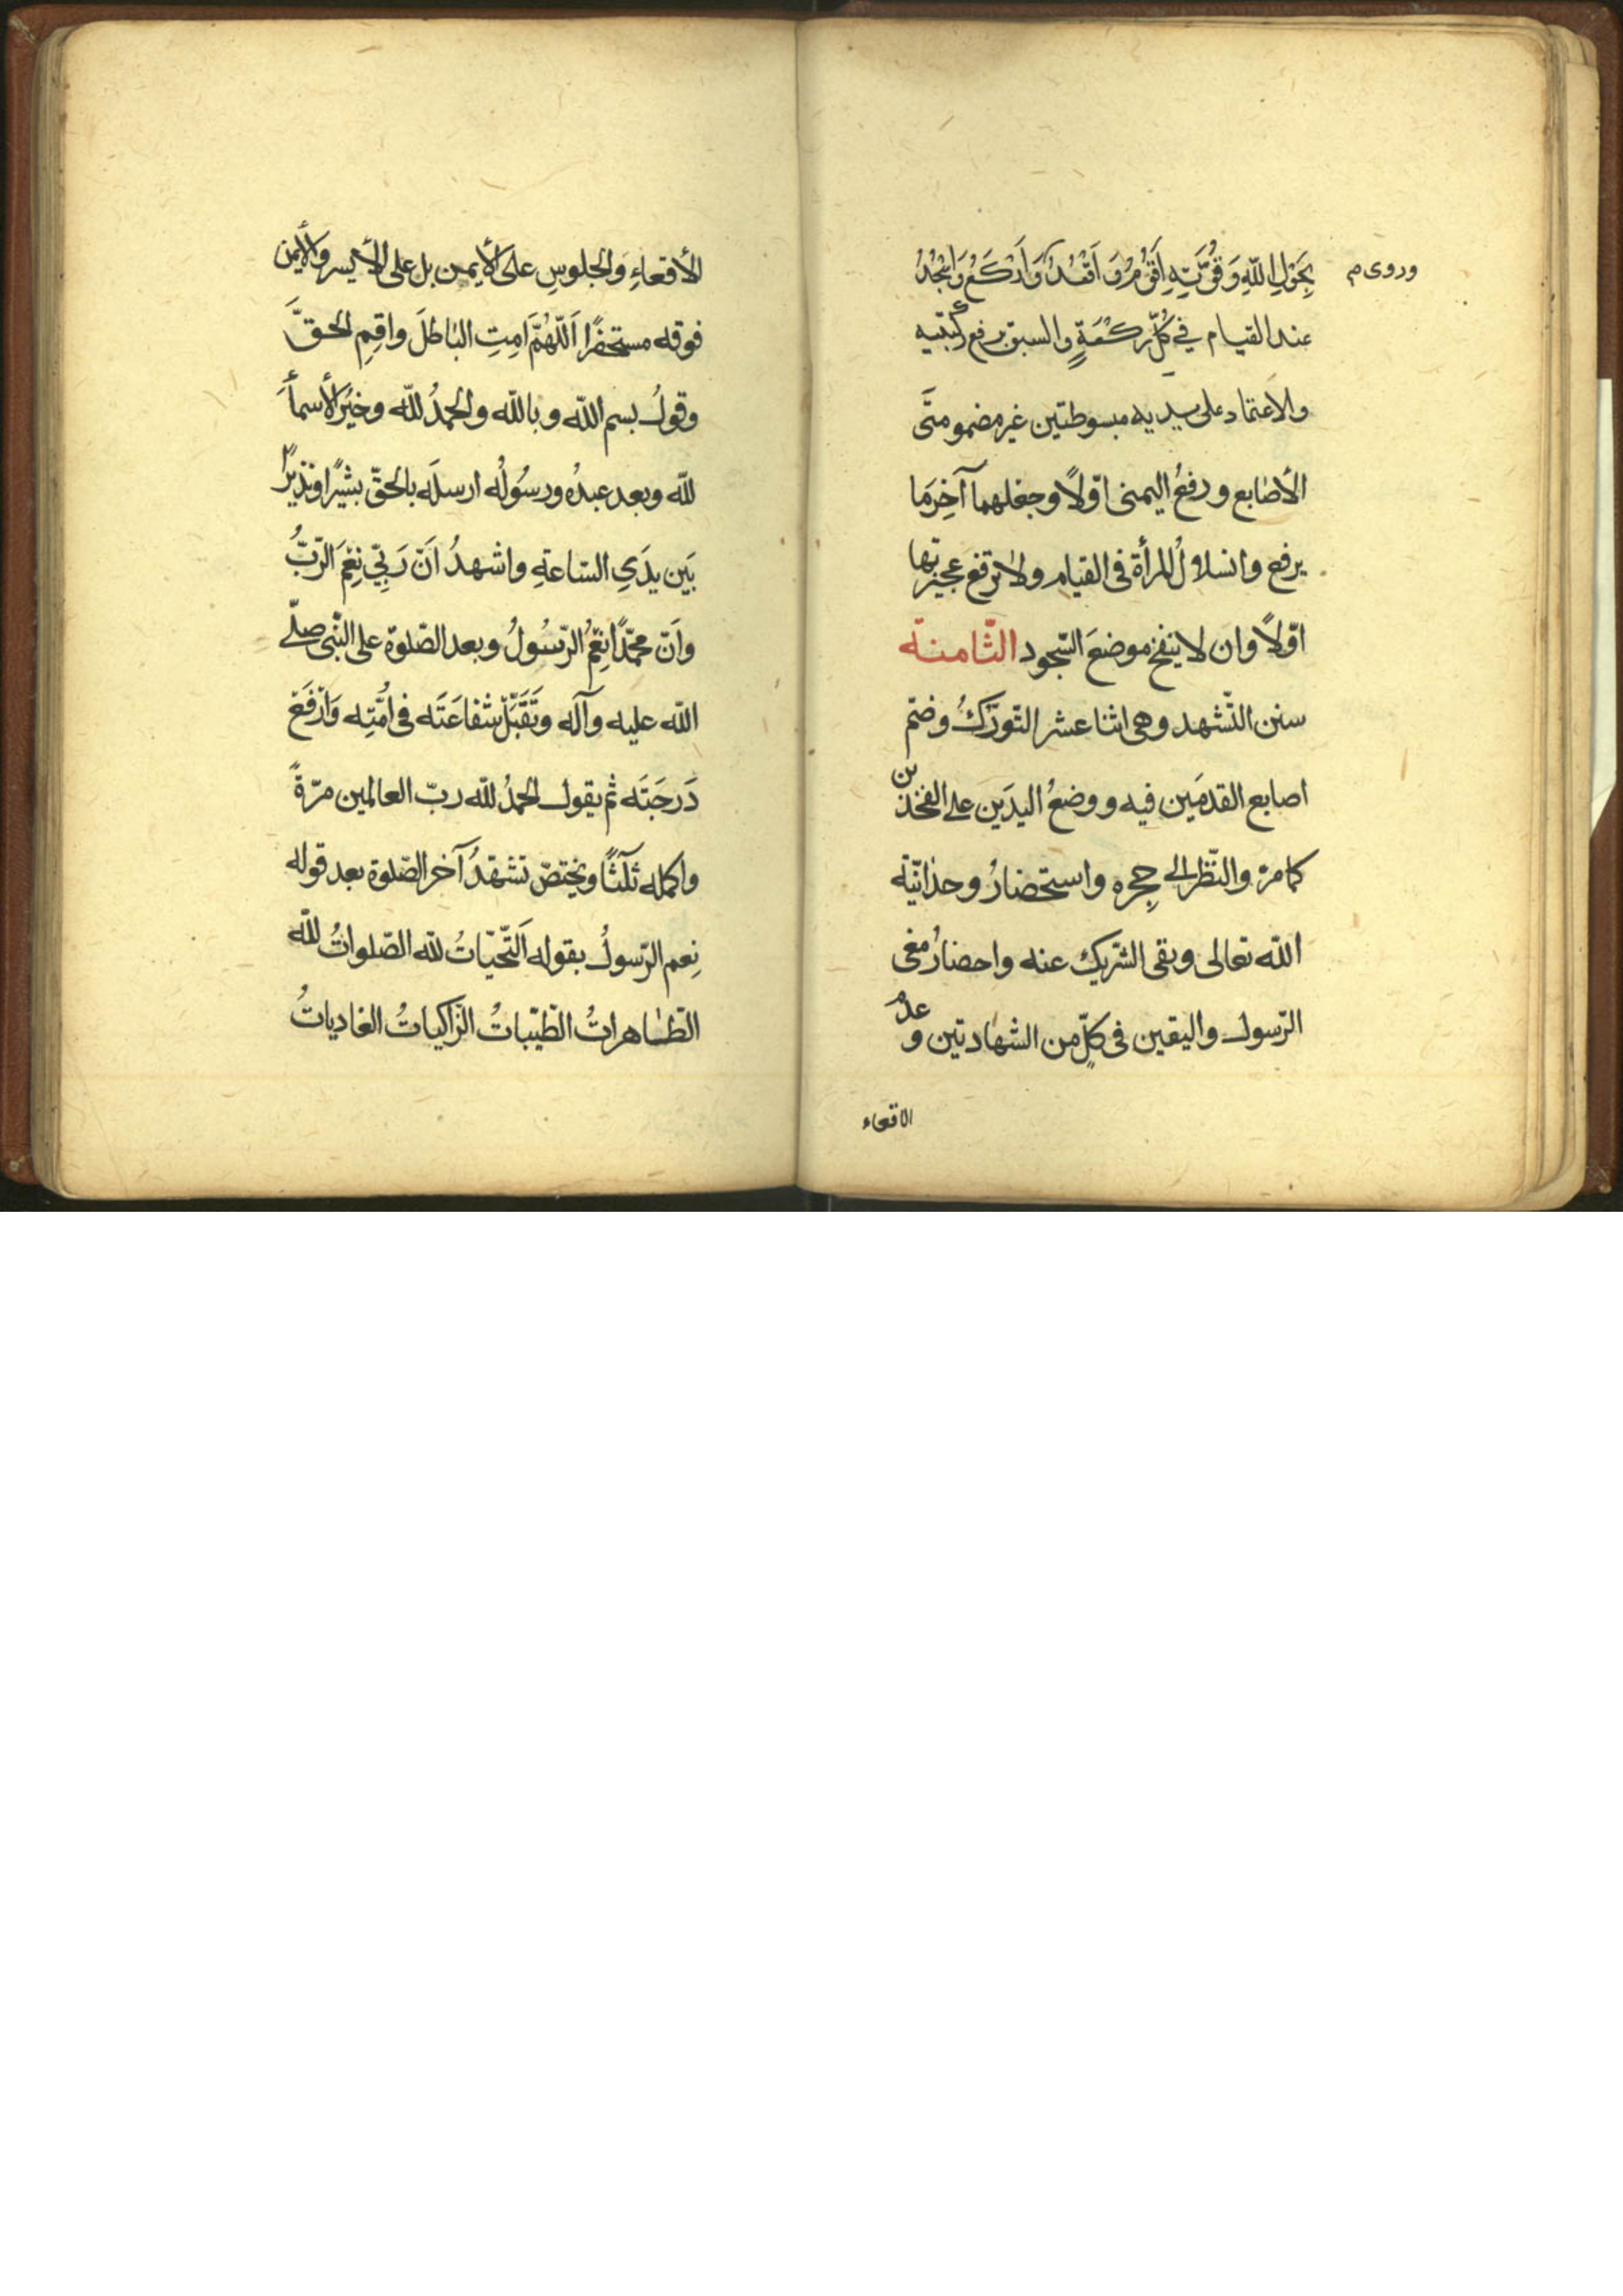 وروى م
بِحَوْلِ اللّٰهِ وَقُوَّتِهِ اَقُوْمُ وَ اَقْعُدُ وَاَرْكَعُ وَاَسْجُدُ
عند القيام في كُلِّ رَكْعَةٍ والسبق برفع ركبتيه
والاعتماد على يديه مبسوطتين غير مضمومتَى
الأصابع ورفعُ اليمنى اوّلاً وجعلهما آخِرَ ما
يرفع وانسلالُ المرأة في القيام ولا ترفع عجيزتها
اوّلاً وان لا ينفخ موضعَ السّجود الثّامنة
سنن التّشهد وهى اثنا عشر التّورّكُ وضمّ
اصابع القدمَين فيه ووضعُ اليدَين على الفخذين
كما مرّ والنّظر الى حِجره واستحضارُ وحدانيّة
اللّه تعالى ونفى الشّريك عنه واحضارُ معنى
الرّسول واليقين فى كلٍّ من الشهادتين و عدمُ
الاقعاء
الأقعاءِ وَالجلوسِ على الأيمن بل على الأيسر والأيمن
فوقه مستحضرًا اَللّهُمَّ اَمِتِ الباطلَ واقِمِ الحقَّ
وقولُ بسم اللّه وباللّه والحمدُ للّه وخيرُ الأسمأ
للّه وبعد عبدُه ورسُولُه ارسلَه بالحقّ بشيرًا ونذيرًا
بَين يدَيِ السّاعةِ واشهدُ اَنّ رَبِّي نِعْمَ الرّبُّ
واَنّ محمّدًا نِعْمَ الرّسُولُ وبعد الصّلوة على النّبى صلّى
اللّه عليه وآله وتَقَبَّلْ شفاعَتَه فى اُمّتِه وَارْفَعْ
دَرجَتَه ثم يقول الحمدُ للّه ربّ العالمين مرّةً
واكمله ثلثًا ويختصّ تشهّدُ آخر الصّلوة بعد قوله
نِعم الرّسولُ بقوله اَلتّحيّاتُ للّه الصّلواتُ للّه
الطّاهراتُ الطّيّباتُ الزّاكياتُ الغادياتُ